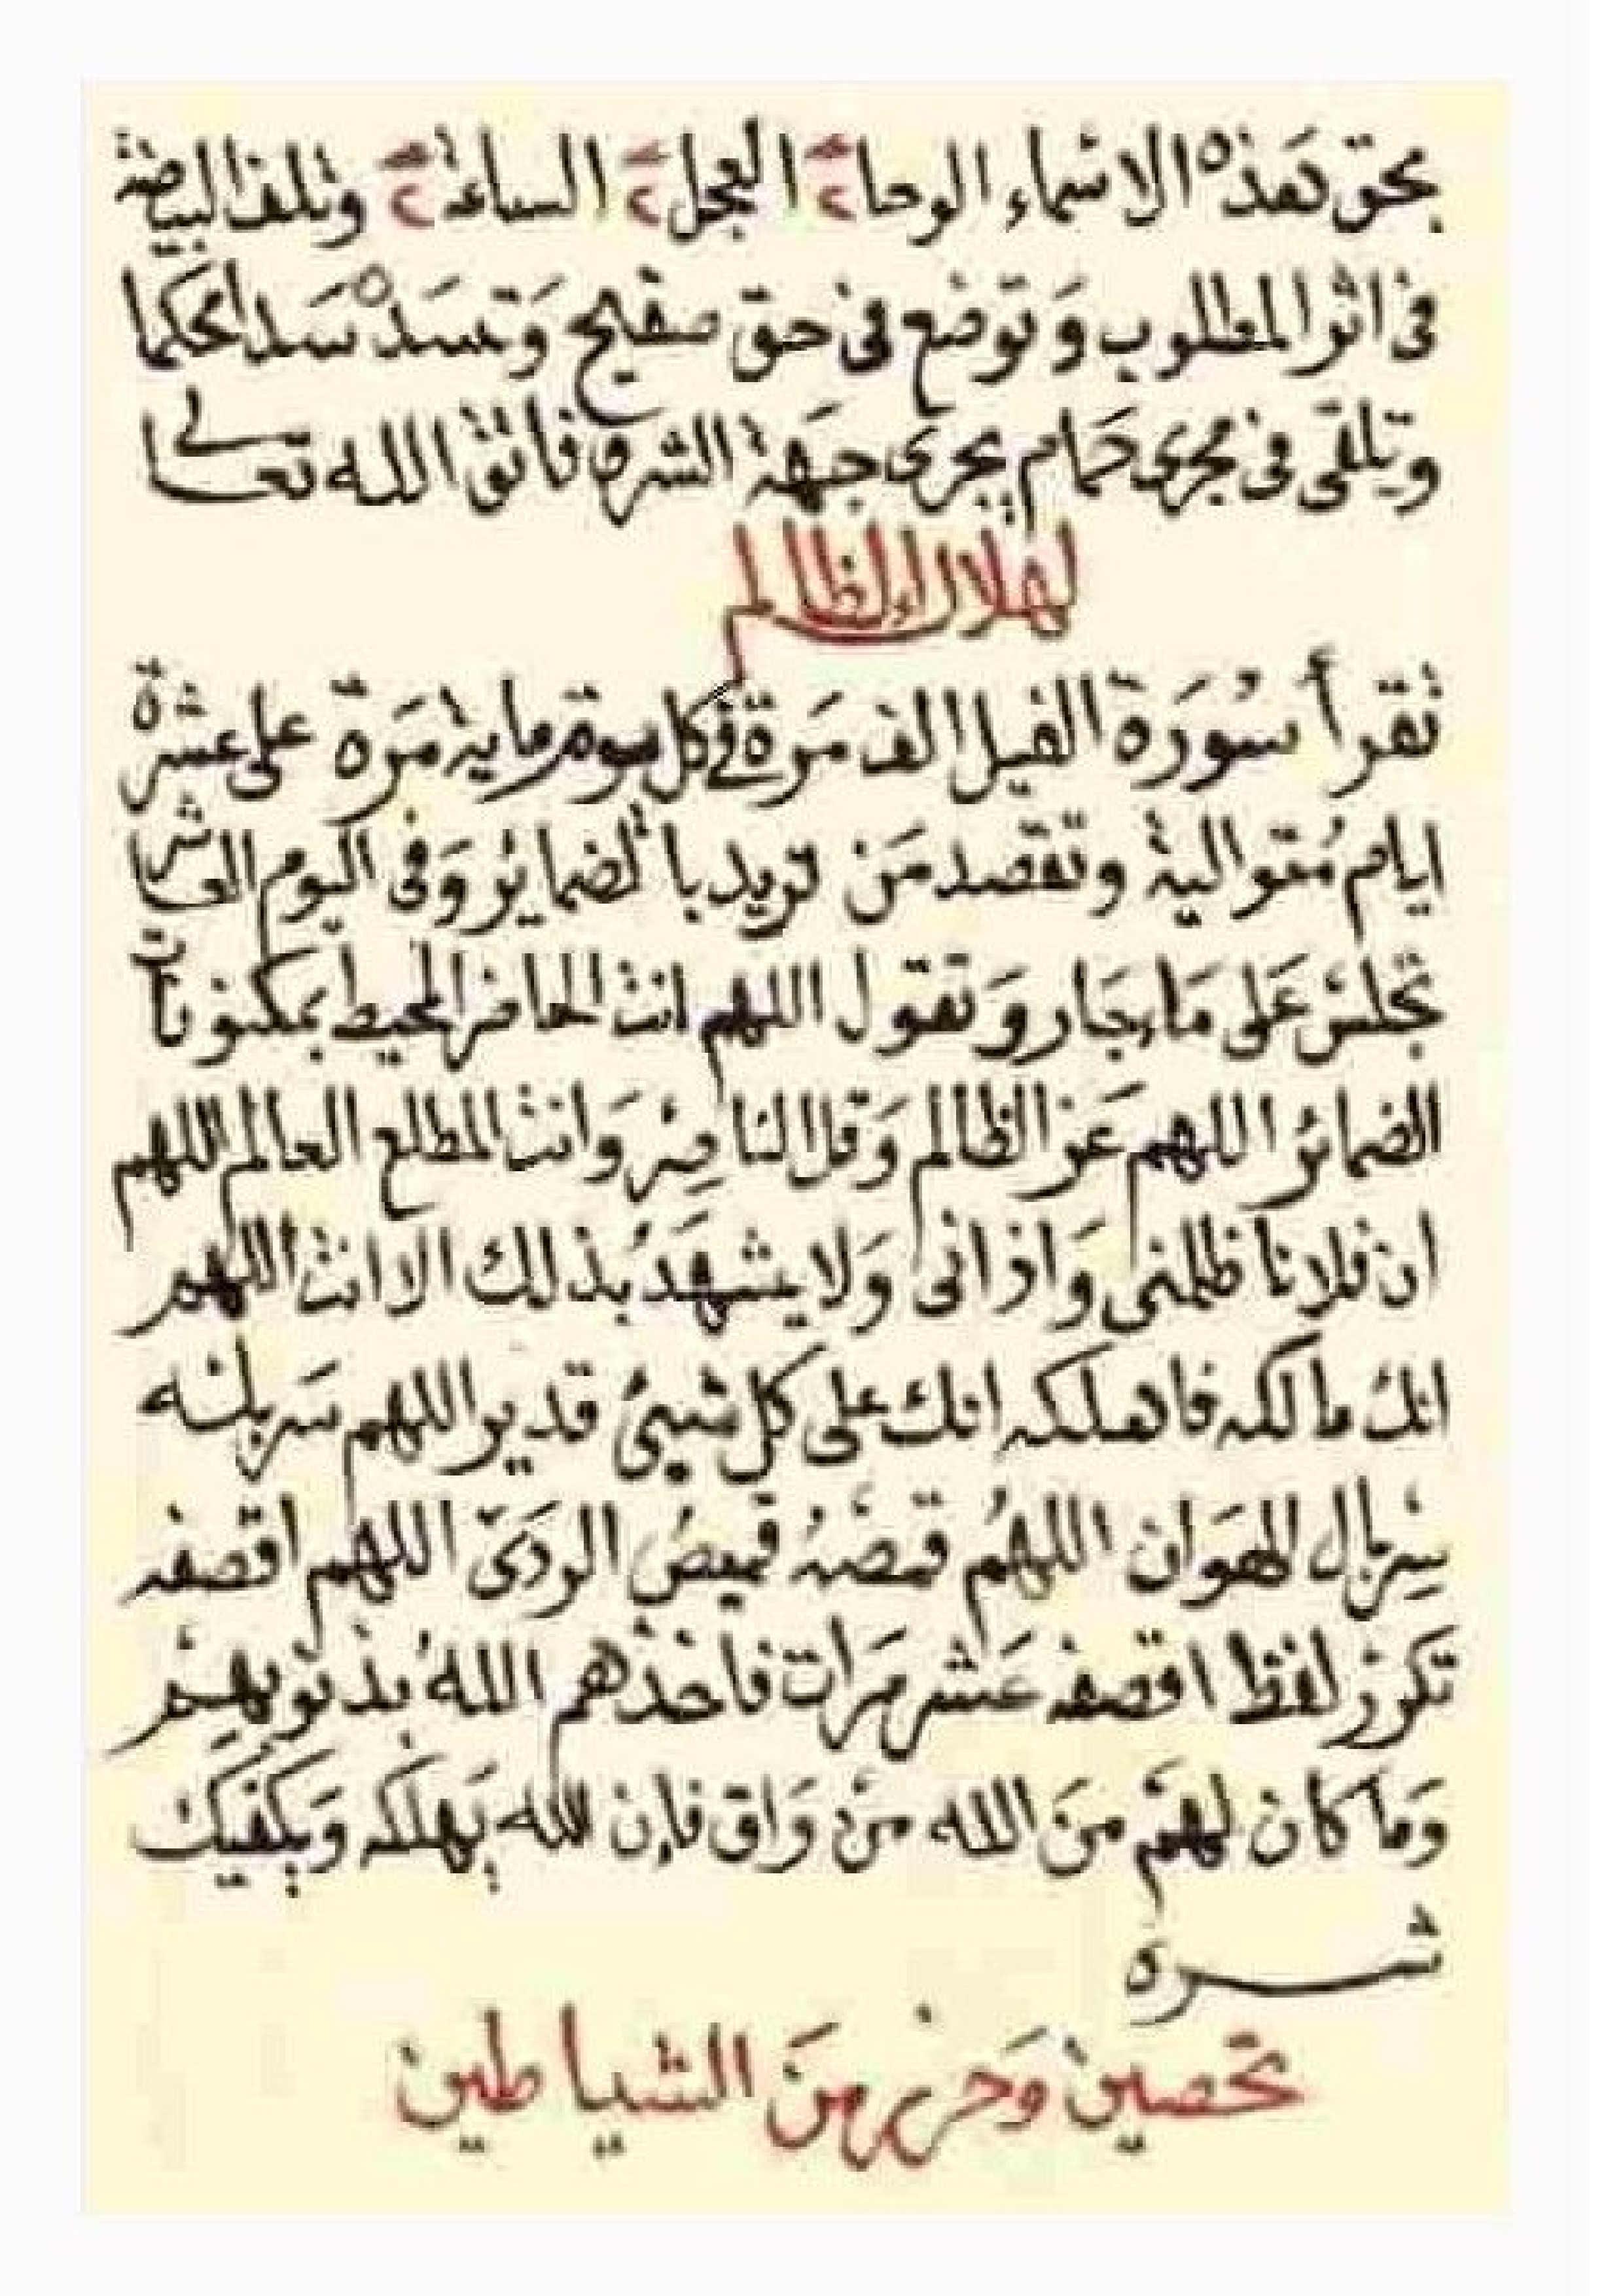 بحق هذه الاسماء الوحا ٢ العجل ٢ الساعة ٢ وتلف البيضة
فى اثر المطلوب وَتوضع فى حق صفيح وَتسدْ سَدا محكما
وتلقى فى مجرى حَمام يجرى جهَة الشرق فاتق الله تعالى
لهلاك الظالم
تقرأ سُورَة الفيل الف مَرة فى كل يوم مايه مَرة على عشرة
ايام مُتوالية وتقصد مَن تريد بالضماير وَفى اليوم العاشر
تجلسْ عَلى مَاء جَار وَتقول اللهم انت الحاضر المحيط بمكنونات
الضمائر اللهم عَز الظالم وَقل الناصِر وَانت المطلع العالم اللهم
ان فلانا ظلمنى وَاذانى وَلا يشهَدُ بذلك الا انت اللهم
انك مالكه فاهلكه انك على كل شيئ قدير اللهم سَربلْه
سِربال الهوَان اللهُم قمصْهُ قميصُ الردَىَ اللهم اقصفه
تكررْ لفظ اقصفه عَشر مَرات فاخذهم اللهُ بذنوبهِمْ
وَما كان لهمْ منَ الله منْ وَاق فإن الله يَهلكه وَيكفيك
شره
تحصين وَحرز منَ الشياطين